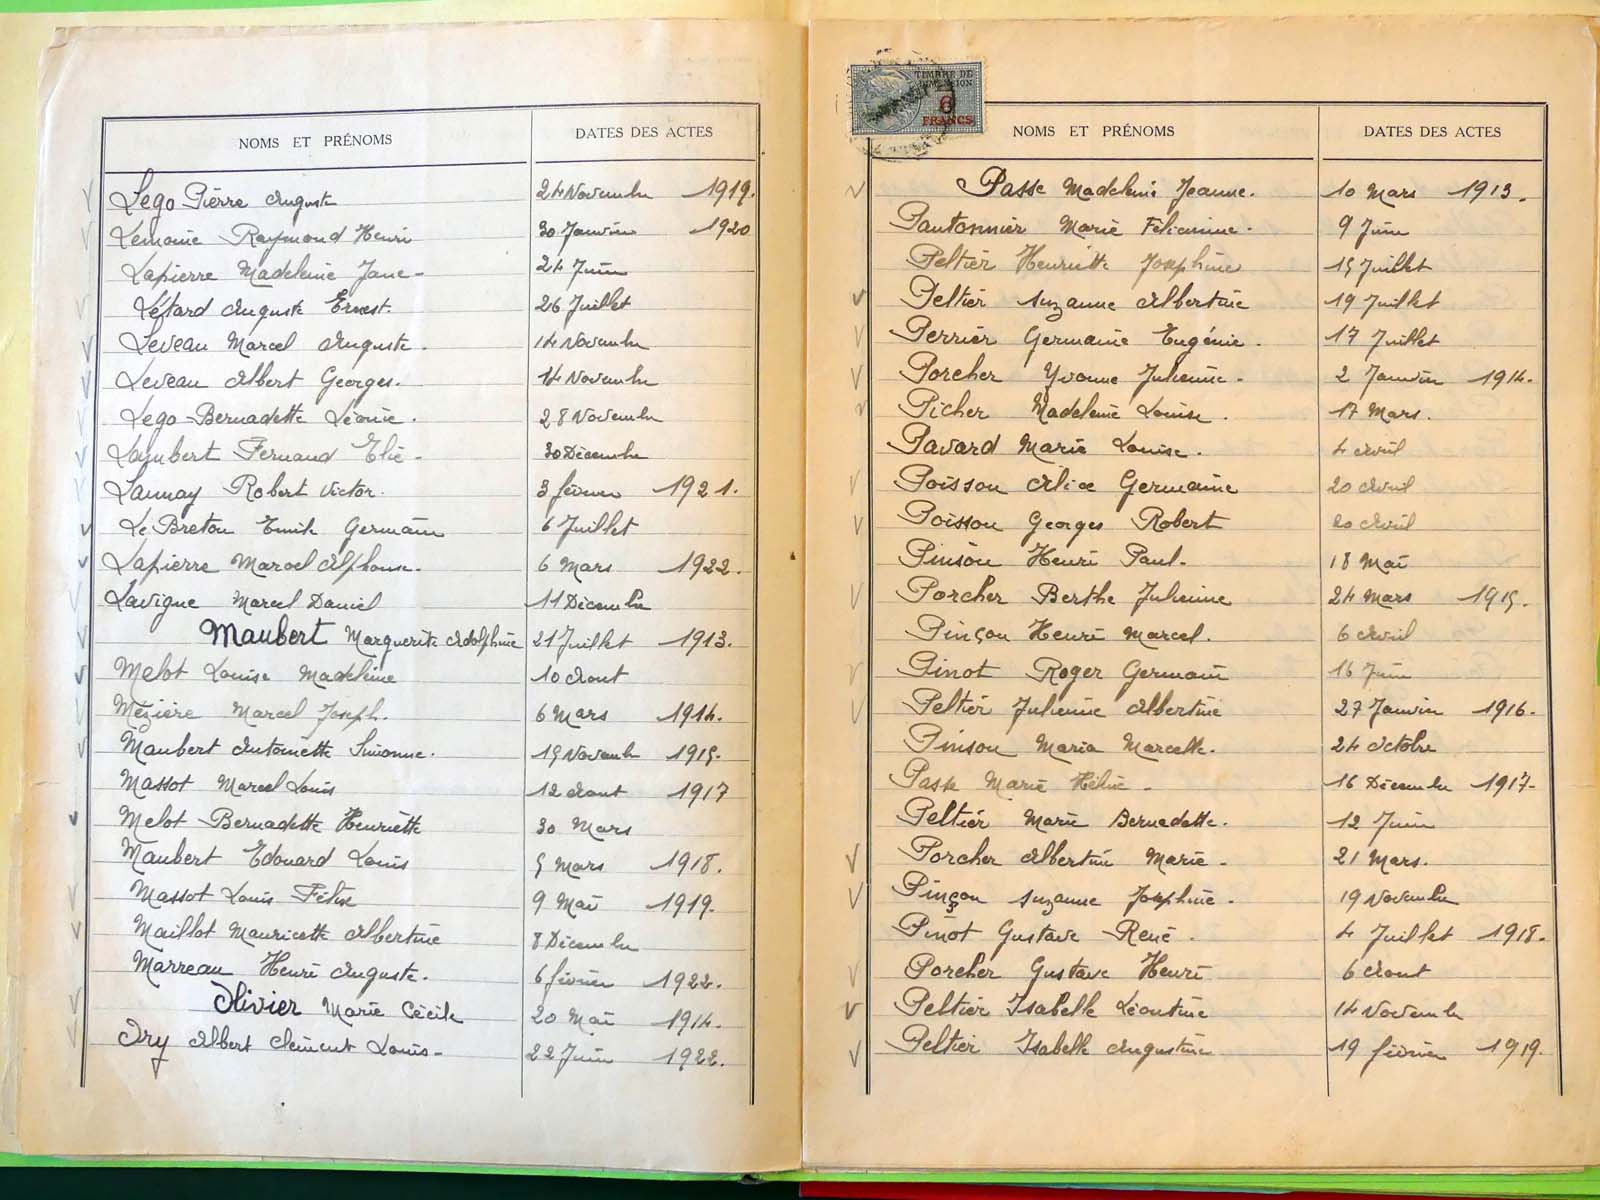 NOMS ET PRÉNOMS DATES DES ACTES
Lego Pierre Auguste 24 Novembre 1919.
Lemoine Raymond Henri 30 Janvier 1920
Lapierre Madeleine Jane - 24 Juin
Létard Auguste Ernest. 26 Juillet
Leveau Marcel Auguste. 14 Novembre
Leveau Albert Georges. 14 Novembre
Lego Bernadette Léonie. 28 Novembre
Lambert Fernand Elie - 30 Décembre
Launay Robert Victor. 3 février 1921.
Le Breton Emile Germain 6 Juillet
Lapierre Marcel Alphonse. 6 Mars 1922.
Lavigne Marcel Daniel 11 Décembre
Maubert Marguerite Adolphine 21 Juillet 1913.
Melot Louise Madeleine 10 Aout
Mézière Marcel Joseph. 6 Mars 1914.
Maubert Antoinette Simonne. 15 Novembre 1915.
Massot Marcel Louis 12 Aout 1917
Melot Bernadette Henriette 30 Mars
Maubert Edouard Louis 5 Mars 1918.
Massot Louis Félix 9 Mai 1919.
Maillot Mauricette Albertine 8 Décembre
Marreau Henri Auguste. 6 février 1922.
Olivier Marie Cécile 20 Mai 1914.
Ory Albert Clément Louis - 22 Juin 1922.
TIMBRE DE
DIMENSION
6
FRANCS
NOMS ET PRÉNOMS DATES DES ACTES
Passe Madeleine Jeanne. 10 Mars 1913.
Pautonnier Marie Félicienne. 9 Juin
Peltier Henriette Josephine 15 Juillet
Peltier Suzanne Albertine 19 Juillet
Perrier Germaine Eugénie. 17 Juillet
Porcher Yvonne Julienne. 2 Janvier 1914.
Picher Madeleine Louise. 17 Mars.
Pavard Marie Louise. 4 Avril
Poisson Alice Germaine 20 Avril
Poisson Georges Robert 20 Avril
Pinson Henri Paul. 18 Mai
Porcher Berthe Julienne 24 Mars 1915.
Pinçon Henri Marcel. 6 Avril
Pinot Roger Germain 16 Juin
Peltier Julienne Albertine 27 Janvier 1916.
Pinson Maria Marcelle. 24 Octobre
Passe Marie Hélène - 16 Décembre 1917.
Peltier Marie Bernadette. 12 Juin
Porcher Albertine Marie - 21 Mars.
Pinçon Suzanne Josephine. 19 Novembre
Pinot Gustave René. 4 Juillet 1918.
Porcher Gustave Henri 6 Aout
Peltier Isabelle Léontine 14 Novembre
Peltier Isabelle Augustine 19 février 1919.